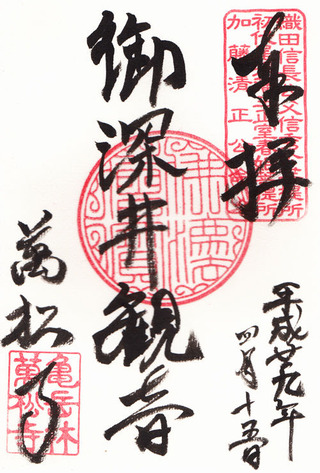 奉拝
織田信長公父信秀公菩提所
加藤清正公
平成廿九年
四月十五日
御深井観音
萬松寺
亀岳林
萬松寺